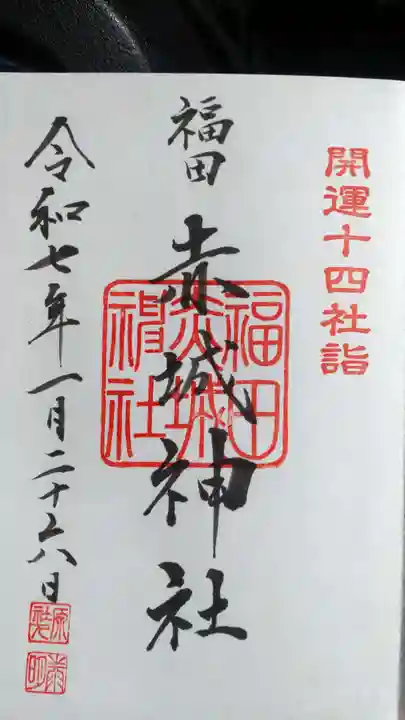 開運十四社詣
福田
赤城神社
福田赤城神社
令和七年一月二十六日